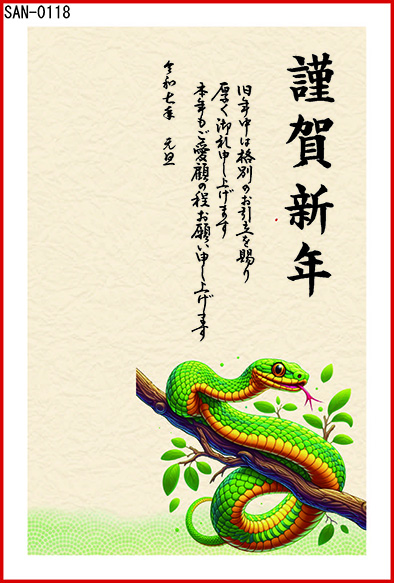 SAN-0118
謹賀新年
旧年中は格別のお引立を賜り
厚く御礼申し上げます
本年もご愛顧の程お願い申し上げます
令和七年 元旦